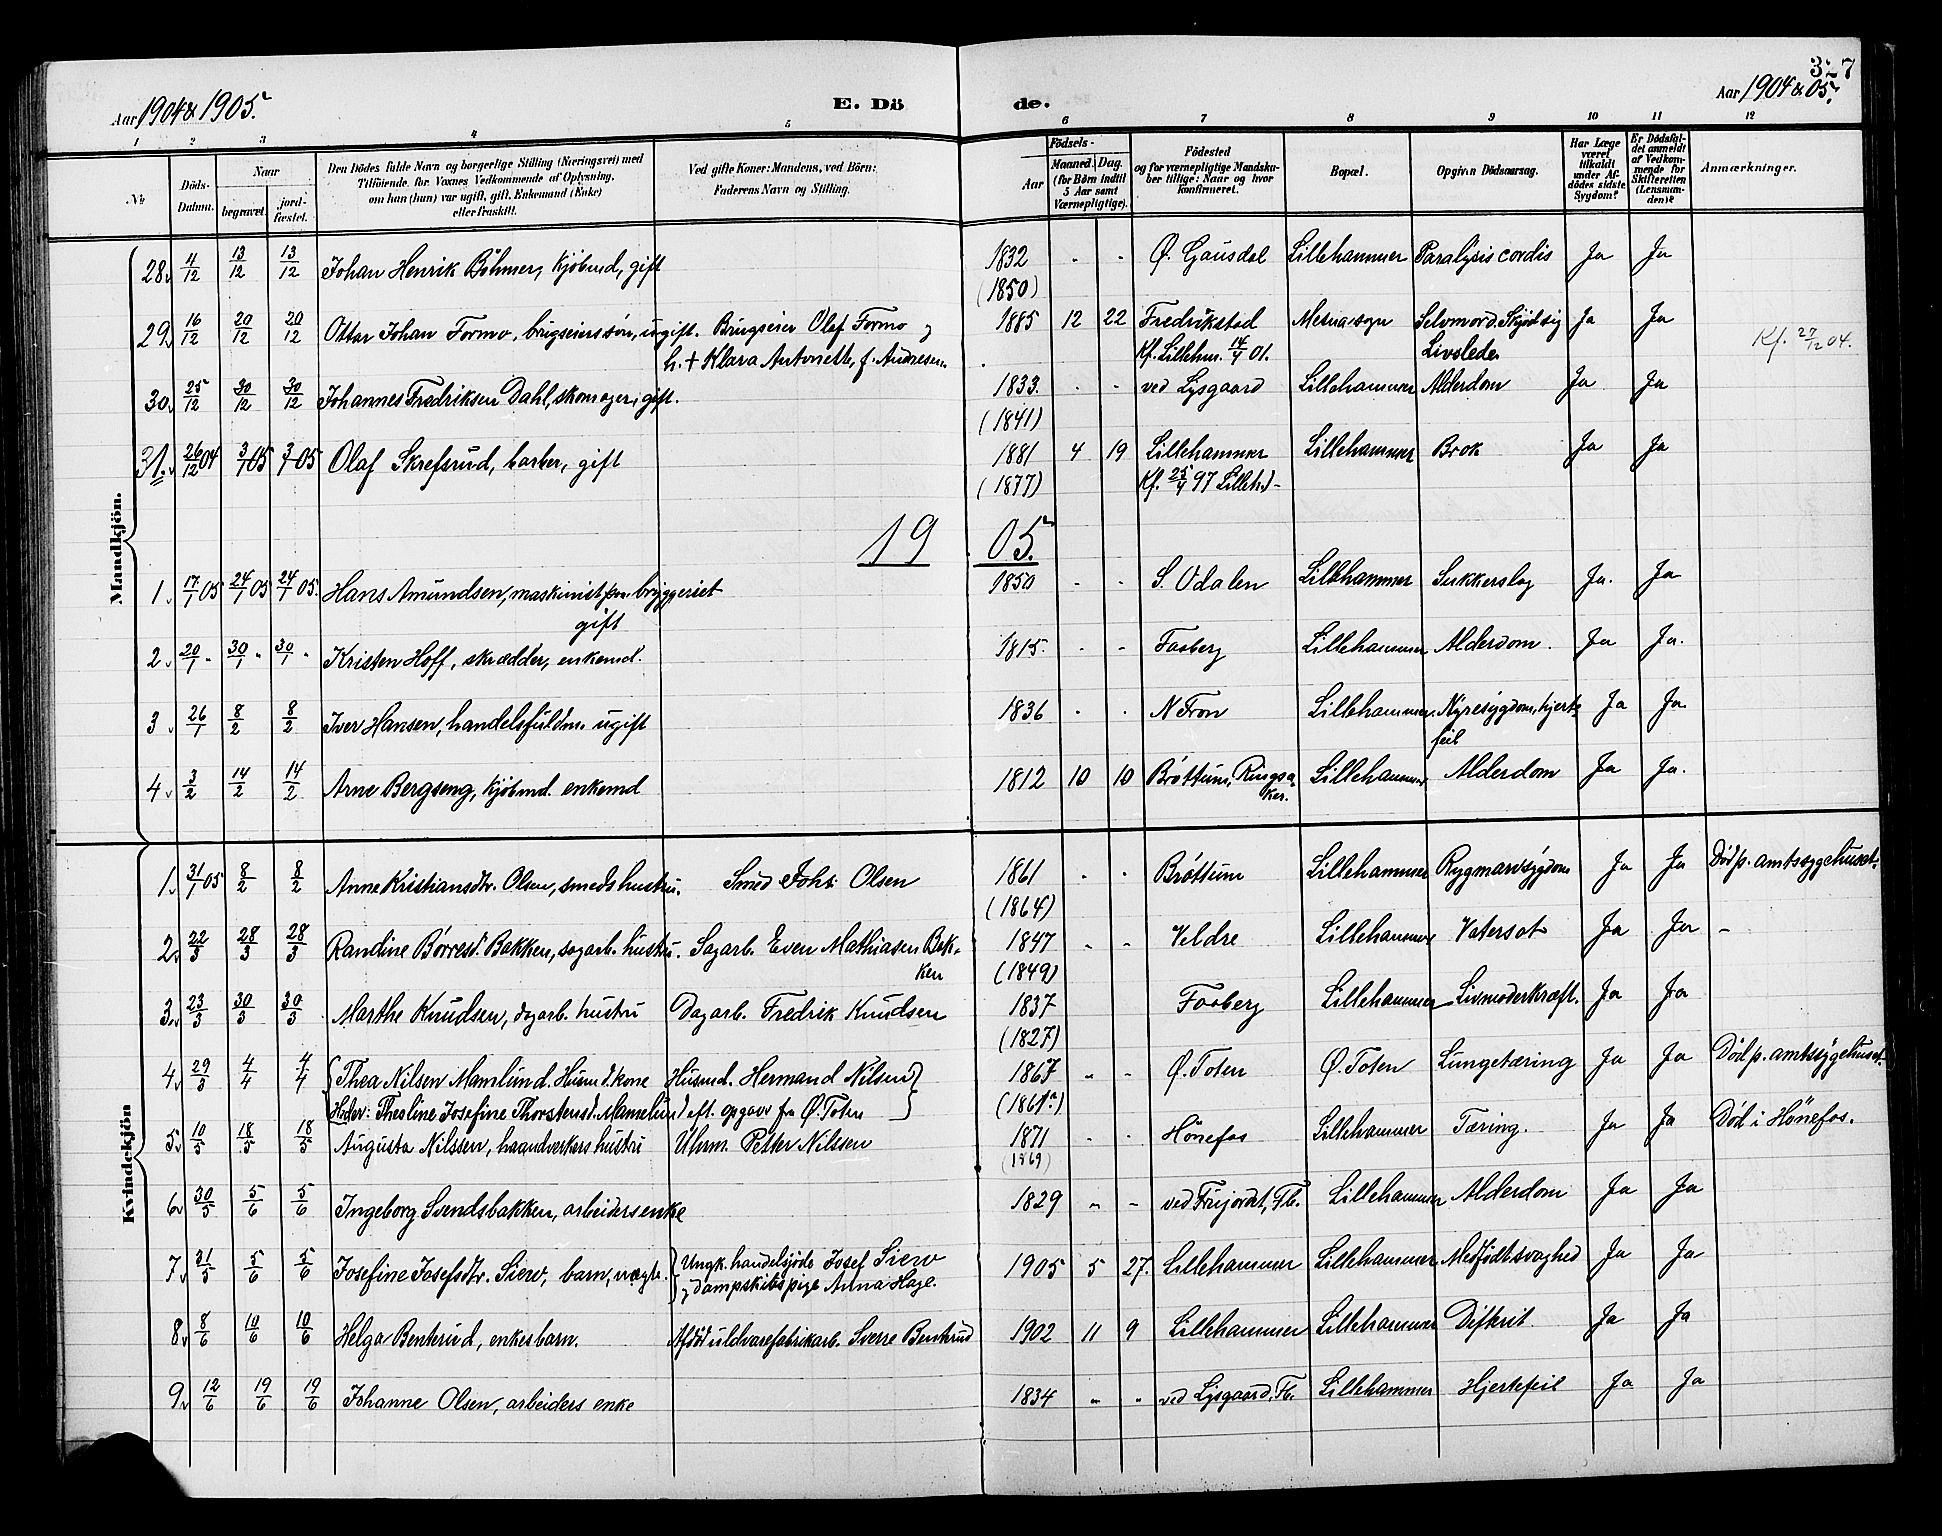 327
Aar 1904 & 1905. E. Dö de. Aar 1904 & 05.
1 2 3 4 5 6 7 8 9 10 11 12
No. Döds-Datum. Naar begravet. jordfæstet. Den Dödes fulde Navn og borgerlige Stilling (Næringsvei) med Tilföiende, for Voxnes Vedkommende af Oplysning, om han (hun) var ugift, gift, Enkemand (Enke) eller fraskilt. Ved gifte Koner: Mandens, ved Börn: Faderens Navn og Stilling. Födsels- Aar Maaned. Dag. (for Börn indtil 5 Aar samt Værnepligtige). Födested og for værnepligtige Mandskaber tillige: Naar og hvor konfirmeret. Bopæl. Opgiven Dödsaarsag. Har Læge været tilkaldt under Afdödes sidste Sygdom? Er Dödsfaldet anmeldt af Vedkommende for Skifteretten (Lensmanden)? Anmærkninger.
Mandkjön.
28 4/12 13/12 13/12 Johan Henrik Böhmer, kjöbmd, gift 1832 - - Ø. Gausdal Lillehammer Paralysis cordis Ja Ja
(1850)
29 16/12 20/12 20/12 Ottar Johan Formo, brugseierssøn, ugift. Brugseier Olaf Formo og 1885 12 22 Fredrikstad Mesna sogn Selvmord. Skjöd sig Ja Ja
h. + Klara Antonette, f. Andresen. Kf. Lilleham. 14/4 01. Livslede. Kf. 27/12 04.
30 25/12 30/12 30/12 Johannes Fredriksen Dahl, skomager, gift. 1833. - - ved Lysgaard Lillehammer Alderdom Ja Ja
(1841)
31. 26/12 04 3/1 05 3/1 05 Olaf Skrefsrud, barber, gift 1881 4 19 Lillehammer Lillehammer Brok Ja Ja
(1877) Kf. 25/4 97 Lilleh.
1905.
1 17/1 05 24/1 05 24/1 05. Hans Amundsen, maskinist paa bryggeriet 1850 - - S. Odalen Lillehammer Sukkersyg Ja. Ja
gift
2 20/1 " 30/1 " 30/1 " Kristen Hoff, skrædder, enkemd. 1815. - - Faaberg Lillehammer Alderdom. Ja Ja.
3 26/1 8/2 8/2 Iver Hansen, handelsfuldm. ugift 1836 - - N Fron Lillehammer Nyresygdom, hjerte Ja Ja.
feil
4 3/2 14/2 14/2 Arne Bergseng, kjöbmd. enkemd 1812 10 10 Brøttum, Ringsaker. Lillehammer Alderdom Ja Ja.
Kvindekjön
1 31/1 05 8/2 8/2 Anne Kristiansdtr. Olsen, smeds hustru. Smed Johs Olsen 1861 - - Brøttum Lillehammer Rygmarvsygdom Ja Ja Död p. amtssygehuset.
(1864)
2 22/3 28/3 28/3 Randine Børresd. Bakken, sagarb. hustru. Sagarb. Even Mathiasen Bakken 1847 " - Veldre Lillehammer Vatersot Ja Ja -
(1849)
3 23/3 30/3 30/3 Marthe Knudsen, dagarb. hustru Dagarb. Fredrik Knudsen 1837 Faaberg Lillehammer Livmoderkræft. Ja Ja
(1827)
4 29/3 4/4 4/4 Thea Nilsen Mamlund. Husmd. kone Husmd. Hermand Nilsen 1867 " - Ø. Toten Ø. Toten Lungetæring Ja Ja Död p. amtssygehuset.
Thesline Josefine Thorstensd. Mamelund eft. opgave fra Ø. Toten
5 10/5 18/5 18/5 Augusta Nilssen, haandverkers hustru Uhrm. Petter Nilssen 1871 - - Hönefos Lillehammer Tæring. Ja Ja Död i Hönefos.
(1869)
6 30/5 5/6 5/6 Ingeborg Svendsbakken, arbeidersenke 1829 " - Lillehammer Alderdom Ja Ja
7 31/5 5/6 5/6 Josefine Josefsdtr. Siew, barn, uægte. Ungk. handelsjöde Josef Siew 1905 5 27. Lillehammer Lillehammer Medfödt svaghed Ja Ja
og dampskibspige Anna Hagl.
8 8/6 10/6 10/6 Helga Benterud, enkes barn. Afdöd uldvarefabrikarb. Sverre Benterud 1902 11 9 Lillehammer Lillehammer Difterit Ja Ja
9 12/6 19/6 19/6 Johanne Olsen, arbeiders enke 1834 " " ved Lysgaard, Fb. Lillehammer Hjertefeil Ja Ja